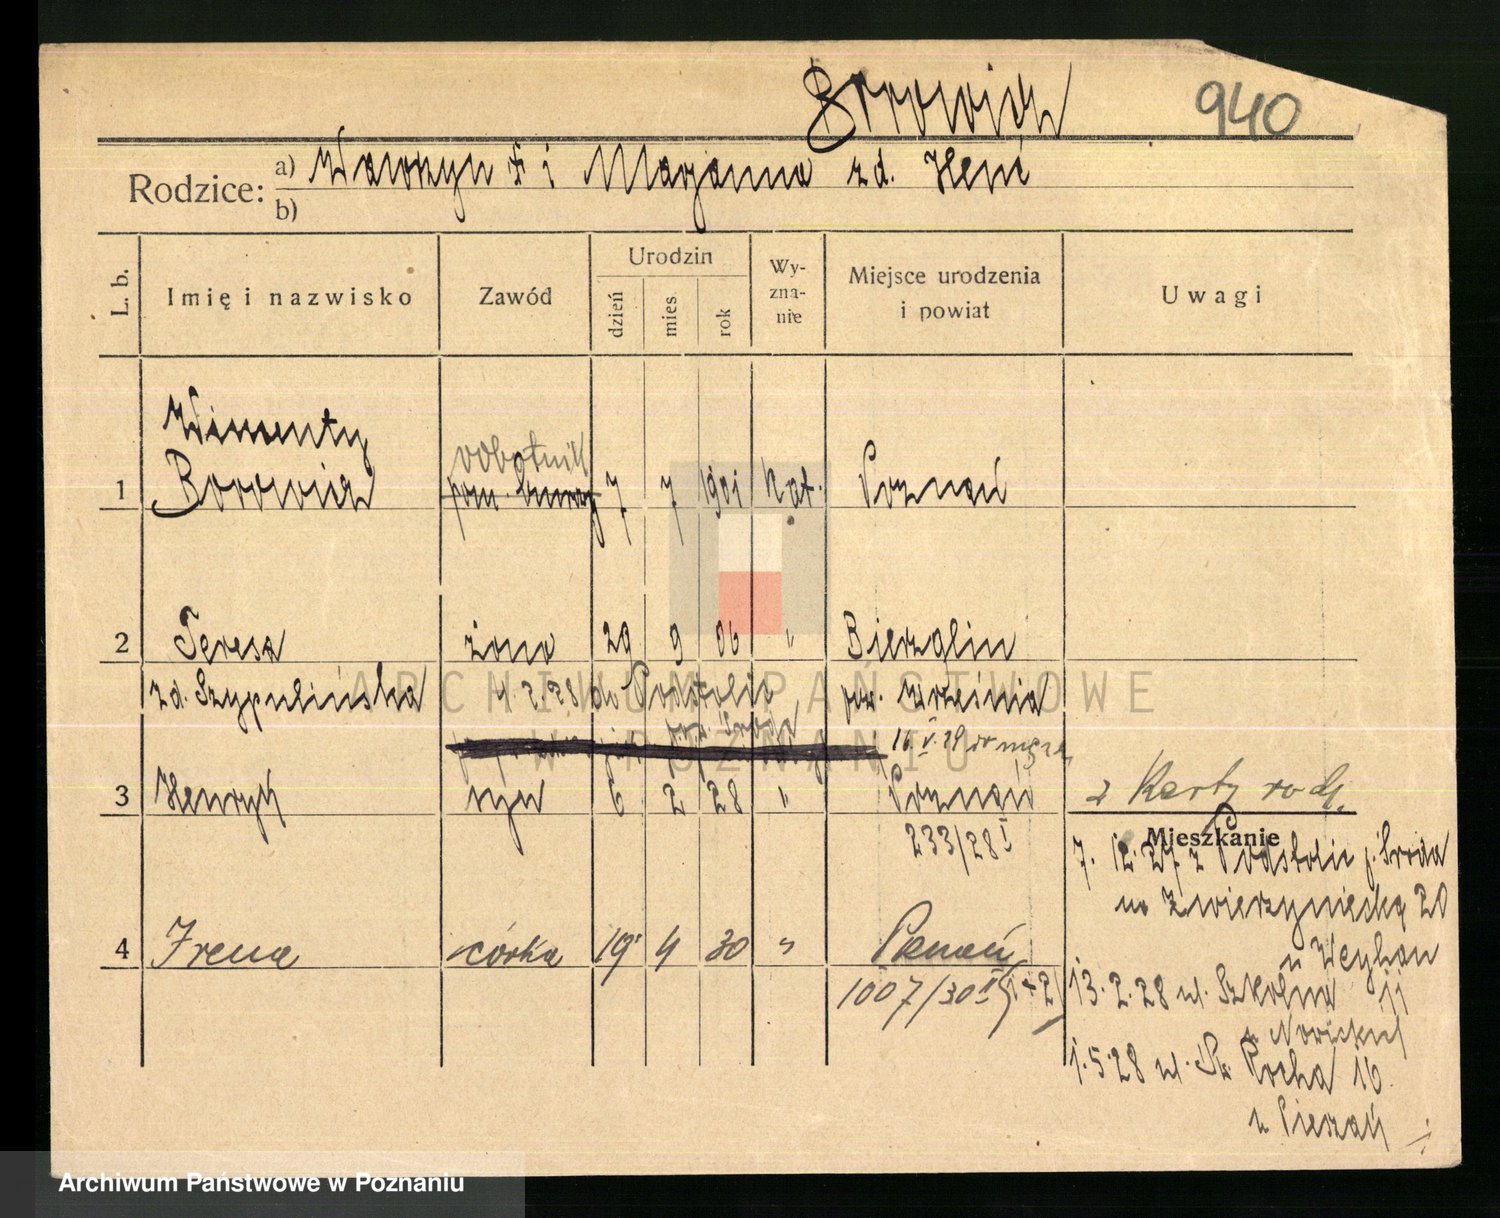 Borowicz 940
Rodzice: a) Wawrzyn † i Marjanna zd. Heni
b)
L. b. Imię i nazwisko Zawód Urodzin dzień mies rok Wy-zna-nie Miejsce urodzenia i powiat Uwagi
Wincenty
robotnik
1 Borowicz pom. 7 7 1901 kat. Poznań
2 Teresa żona 29 9 06 " Bierzglin
zd. Szypulińska 4.2.28 do Podstolic pow. Września
pow. Środa
16.V.29 do męża
3 Henryk syn 6 2 28 " Poznań z Karty rodz.
233/28 I
Mieszkanie
7.12.27 z Podstolic p. Środa
na Zwierzyniecką 20
4 Irena córka 19 4 30 " Poznań
u Weyhan
1007/30 II 13.2.28 ul. Szkolna 11
u Nowickiej
1.5.28 ul. Św. Rocha 16
u
ARCHIWUM PAŃSTWOWE
W POZNANIU
Archiwum Państwowe w Poznaniu